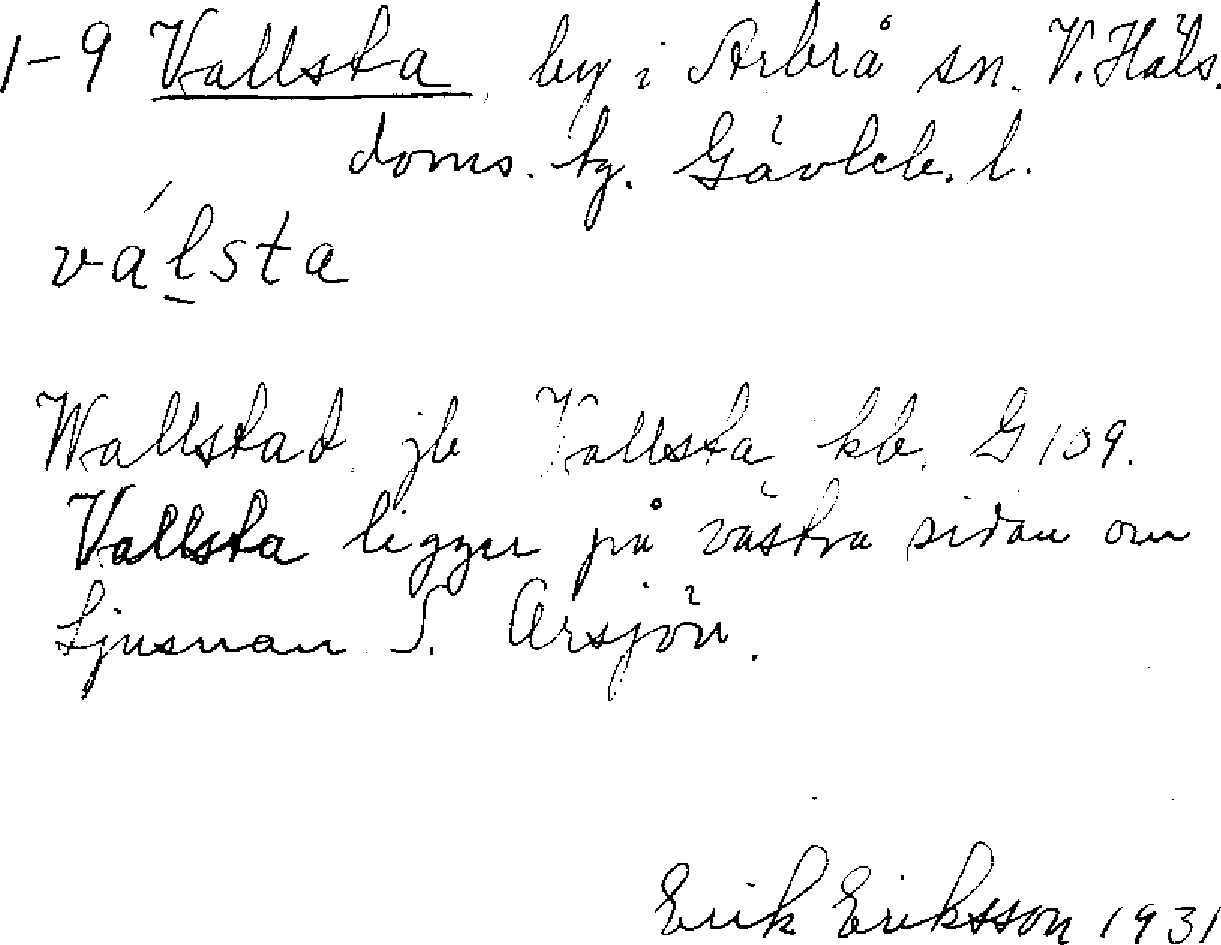 1-9 Vallsta by i Arbrå sn. V. Häls.
doms. tg. Gävleb. l.
válsta
Wallstad jb Vallsta kb. G 109.
Vallsta ligger på västra sidan om
Ljusnan S. Orsjön.
Erik Eriksson 1931